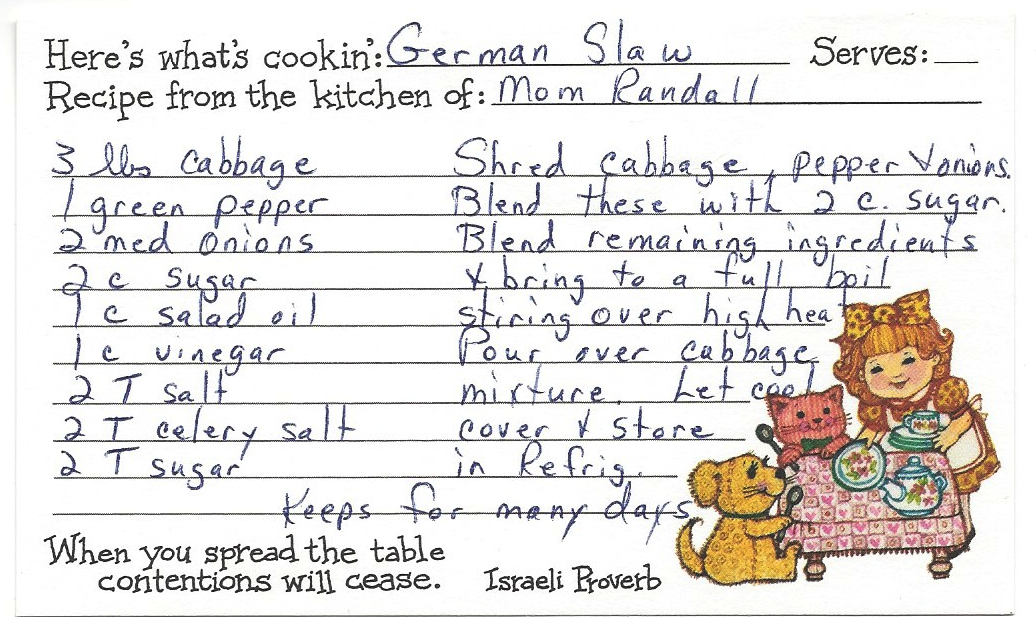 Here's what's cookin': German Slaw Serves:
Recipe from the kitchen of: Mom Randall
3 lbs cabbage
1 green pepper
2 med onions
2 c sugar
1 c salad oil
1 c vinegar
2 T salt
2 T celery salt
2 T sugar
Shred cabbage, pepper & onions.
Blend these with 2 c. sugar.
Blend remaining ingredients
& bring to a full boil
stiring over high heat
Pour over cabbage
mixture. Let cool
cover & store
in Refrig.
Keeps for many days
When you spread the table
contentions will cease. Israeli Proverb